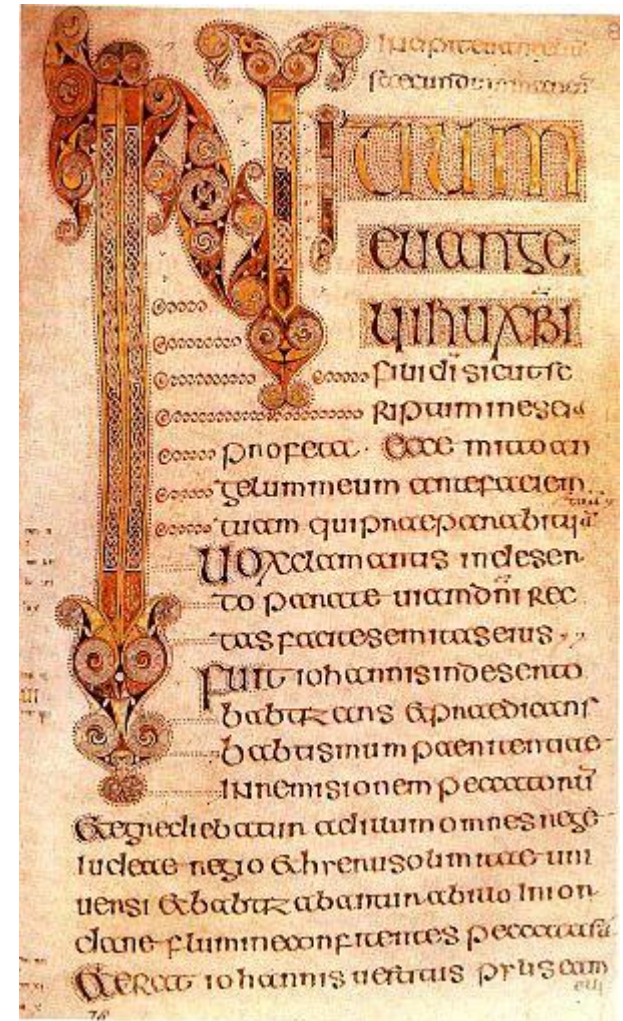 INITIUM
euange
lii ihu xpi
filii di sicut sc
riptum in eseia
profeta · Ecce mitto an
gelum meum ante faciem
tuam qui praeparabit uiā
Uox clamantis in deser
to parate uiam dni rec
tas facite semitas eius
Fuit iohannis in deserto
babtizans & praedicans
babtismum paenitentiae
in remisionem peccatorū
& egrediebatur ad illum omnes
iudeae regio & hierusolimitae uni
uersi & babtizabantur ab illo in ior
dane flumine confitentes peccata sua
& erat iohannis uestitus pilis cam
eli